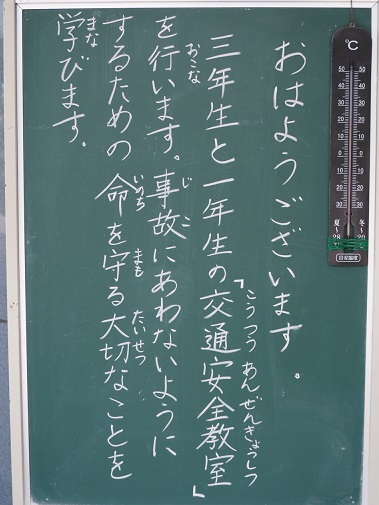 おはようございます。
三年生と一年生の「交通安全教室」
こうつうあんぜんきょうしつ
を行います。事故にあわないように
おこな
じこ
するための命を守る大切なことを
いのち
まも
たいせつ
学びます。
まな
℃
50 50
40 40
30 30
20 20
10 10
0 0
10 10
20 20
30 30
夏 冬